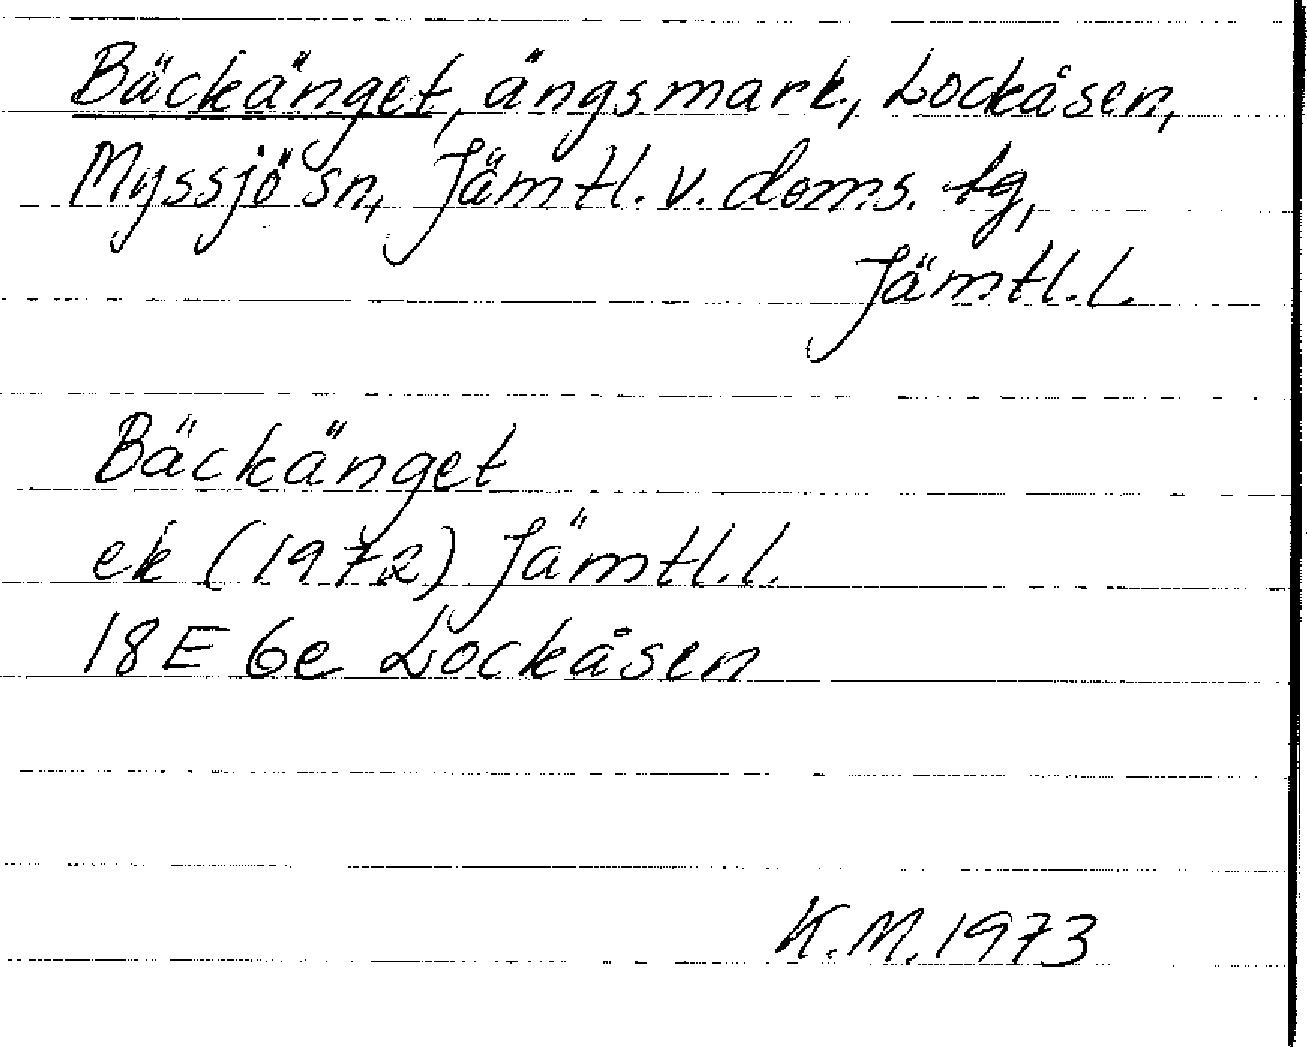 Bäckänget, ängsmark, Lockåsen,
Myssjö sn, Jämtl. v. doms. tg,
Jämtl. l.
Bäckänget
ek (1972) Jämtl. l.
18E 6e Lockåsen
K.M. 1973